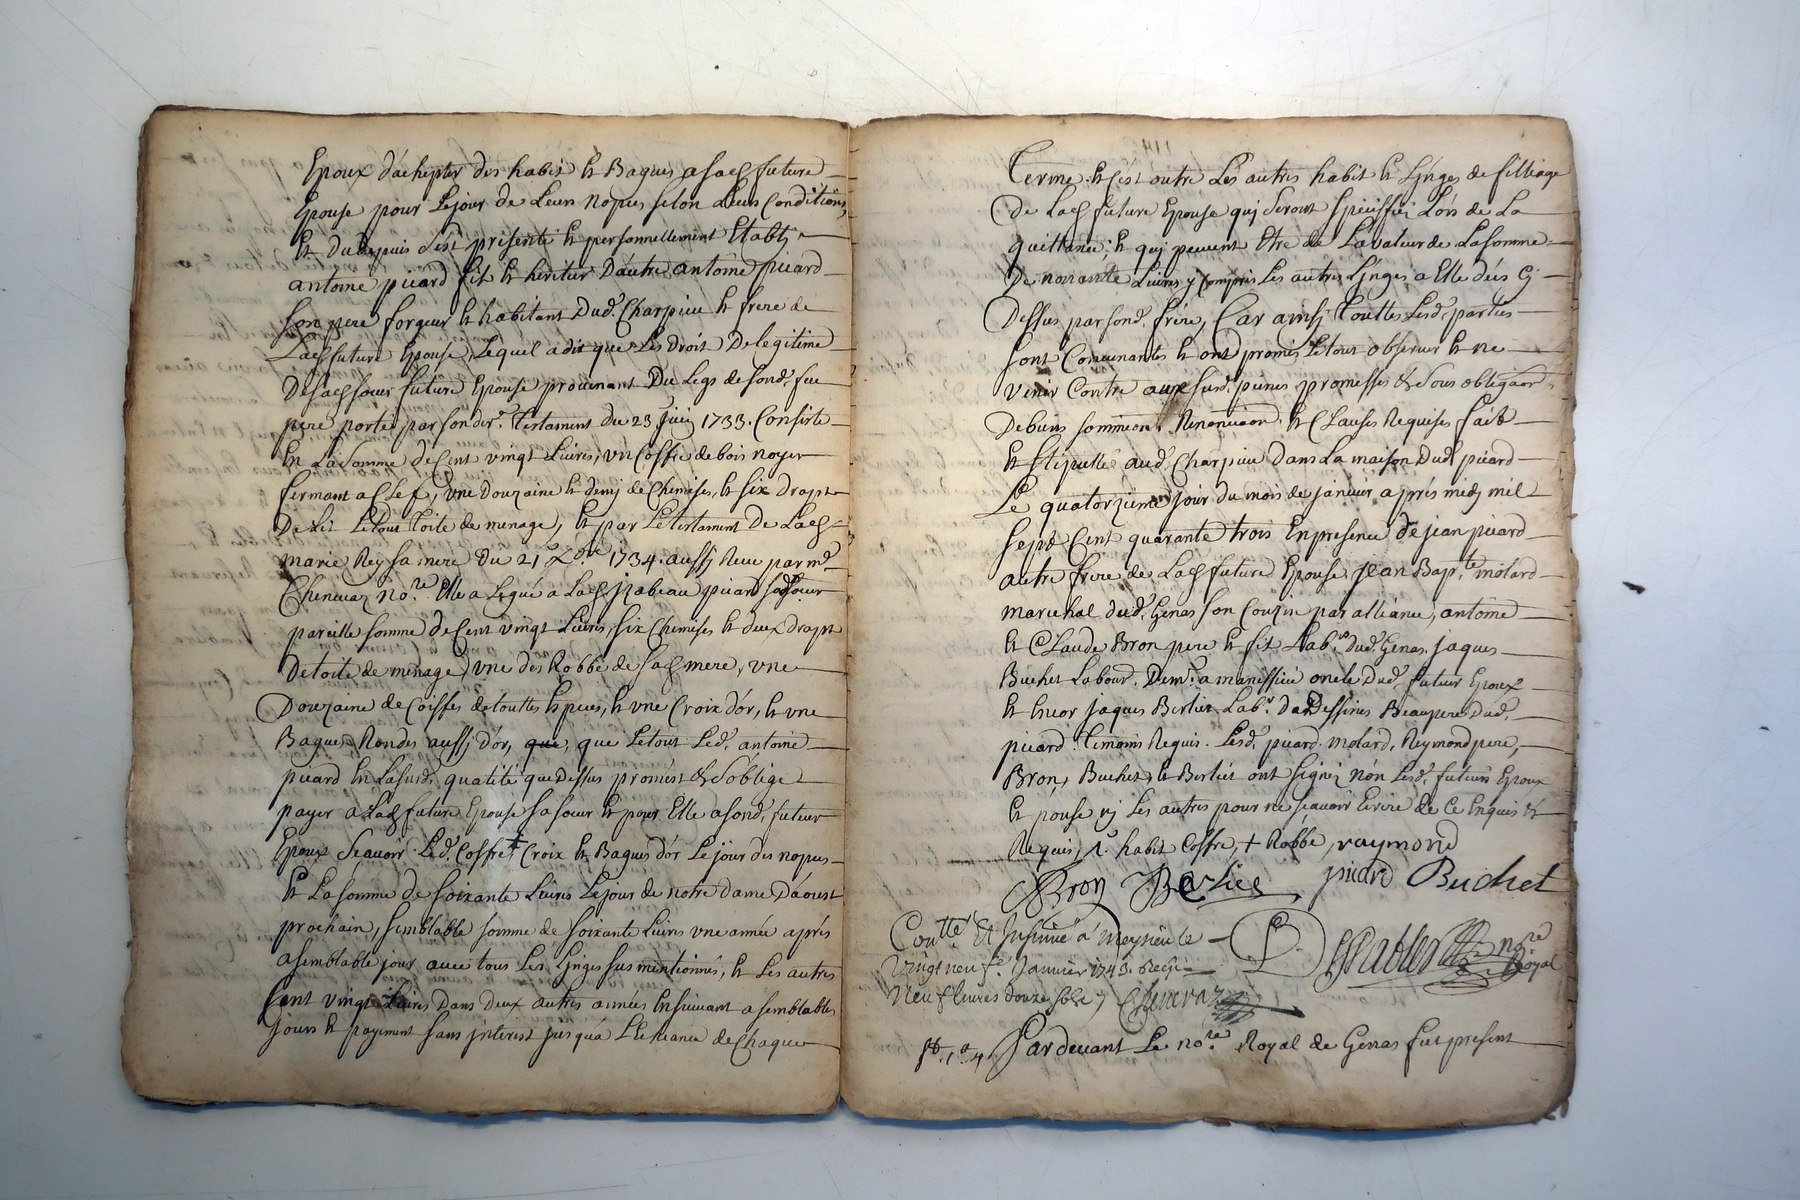 Epoux d'achepter des habits et Bagues a sad. future
Epouse pour Le jour de Leurs nopces selon Leurs Conditions,
Et du depuis s'est présenté et personnellement Etably
antoine picard fils et heritier D'autre antoine picard
son pere forgeur et habitant Dud. Charpieu et frere de
Lad. future Epouse, Lequel a dit que Les Droit De legitime
De sad. soeur future Epouse provenant Du Legs de sond. feu
pere porté par son der. Testament du 23 Juin 1733. Consiste
En La Somme de Cent vingt Livres, un Coffre de bois noyer
fermant a Clef, une Douzaine et demy de Chemises, et six drapt
De Lit Le tout Toile de menage, Et par Le testament de Lad.
marie Rey sa mere Du 21 1734. aussy Receu par me
Chenevaz nore. Elle a Legué à Lad. Izabeau picard sad. soeur
pareille somme de Cent vingt Livres, six Chemises et deux drapt
De toile de menage, une des Robbe de sad. mere, une
Douzaine de Coiffes de touttes Especes, et une Croix d'or, et une
Bagues Rondes aussy d'or, que, que Le tout Led. antoine
picard En La susd. qualité que Dessus promest et s'oblige
payer a Lad. future Epouse sa soeur et pour Elle a sond. futeur
Epoux Scavoir Led. Coffre + Croix et Bagues d'or Le jour des nopces
Et La somme de soixante Livres Le jour de notre dame D'aoust
prochain, semblable somme de soixante Livres une année après
a semblable jour avec tous Les Linges sus mentionnés, et Les autres
Cent vingt Livres Dans deux autres années Ensuivant a semblables
jours et payement sans jnterest jusqu'à L'echeance de Chaque
Terme. Et c'est outre Les autres habit et Linges de filliage
De Lad. future Epouse quj seront speciffiés Lors de La
quittance; et quj peuvent Etre de La valeur de La somme
De nonante Livres y Compris Les autres Linges a Elle dés Cy
Dessus par sond. frere, Car ainsy Touttes Lesd. parties
sont Convenantes et ont promis Le tout observer et ne
venir Contre aux susd. peines promesses et sous obligaon
De biens sommission, Renonciaon, et Clauses Requises fait
Et Stipullé aud. Charpieu Dans La maison Dud. picard
Le quatorzieme jour du mois de janvier après midy mil
sept Cent quarante trois En presence de jean picard
autre frere de Lad. future Epouse, jean Bapte. molard
marechal dud. Genas son Couzin par alliance, antoine
et Claude Bron pere et fils Labrs. Dud. Genas. jaques
Buchet Labour. Demt. a manissieu oncle Dud. futeur Epoux
jaques Berlier Labr. Beaupere Dud.
picard. Temoins Requis. Lesd. picard. molard, Reymond pere,
Bron, Buchet, et Berlier ont signez non Lesd. futeurs Epoux
Et pouse ny Les autres pour ne scavoir Ecrire de Ce Enquis et
Requis, habit Coffre, + Robbe, raymond
Bron Berlier picard Buchet
Contlé Et Insinué a Meysieu le
vingt neufe. Janvier 1743. Reçû
neuf livres douze sols Chenevaz
nore Royal
Par devant Le nore. Royal de Genas fut présent